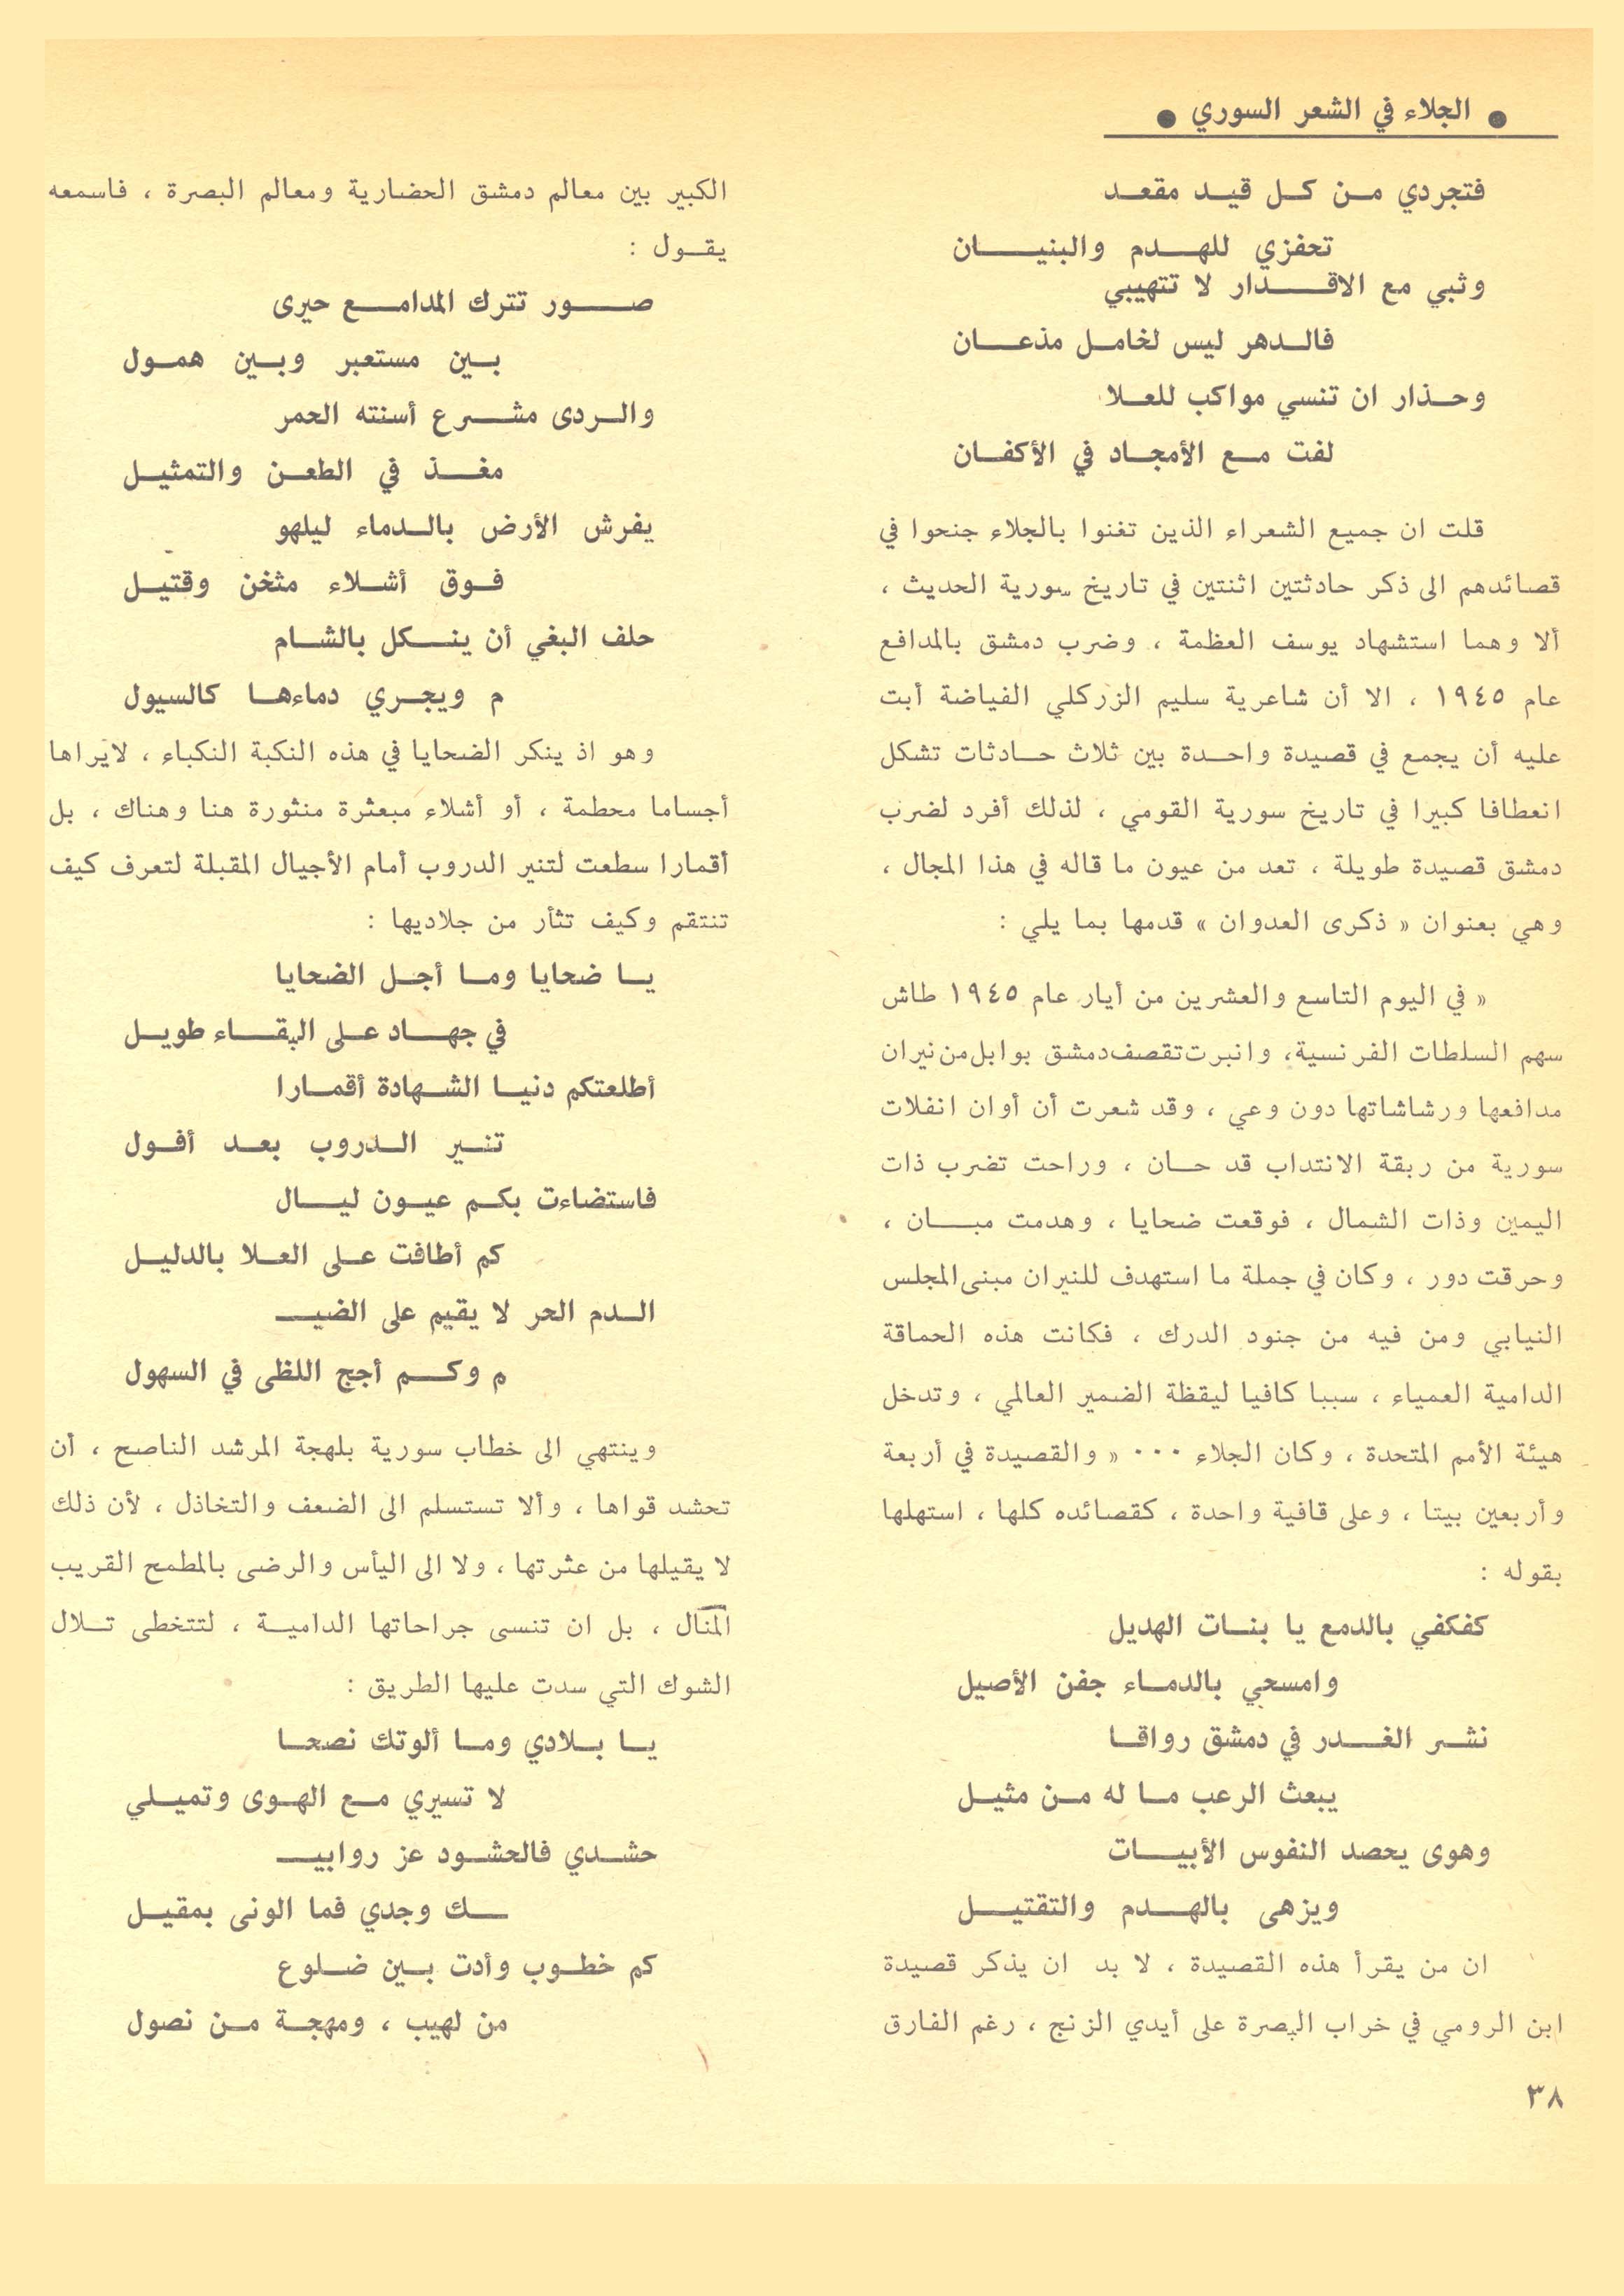 ● الجلاء في الشعر السوري ●
فتجردي من كل قيد مقعد
تحفزي للهدم والبنيان
وثبي مع الاقدار لا تتهيبي
فالدهر ليس لخامل مذعان
وحذار ان تنسي مواكب للعلا
لفت مع الأمجاد في الأكفان
قلت ان جميع الشعراء الذين تغنوا بالجلاء جنحوا في
قصائدهم الى ذكر حادثتين اثنتين في تاريخ سورية الحديث ،
ألا وهما استشهاد يوسف العظمة ، وضرب دمشق بالمدافع
عام ١٩٤٥ ، الا أن شاعرية سليم الزركلي الفياضة أبت
عليه أن يجمع في قصيدة واحدة بين ثلاث حادثات تشكل
انعطافا كبيرا في تاريخ سورية القومي ، لذلك أفرد لضرب
دمشق قصيدة طويلة ، تعد من عيون ما قاله في هذا المجال ،
وهي بعنوان « ذكرى العدوان » قدمها بما يلي :
« في اليوم التاسع والعشرين من أيار عام ١٩٤٥ طاش
سهم السلطات الفرنسية، وانبرت تقصف دمشق بوابل من نيران
مدافعها ورشاشاتها دون وعي ، وقد شعرت أن أوان انفلات
سورية من ربقة الانتداب قد حان ، وراحت تضرب ذات
اليمين وذات الشمال ، فوقعت ضحايا ، وهدمت مبان ،
وحرقت دور ، وكان في جملة ما استهدف للنيران مبنى المجلس
النيابي ومن فيه من جنود الدرك ، فكانت هذه الحماقة
الدامية العمياء ، سببا كافيا ليقظة الضمير العالمي ، وتدخل
هيئة الأمم المتحدة ، وكان الجلاء ٠٠٠ « والقصيدة في أربعة
وأربعين بيتا ، وعلى قافية واحدة ، كقصائده كلها ، استهلها
بقوله :
كفكفي بالدمع يا بنات الهديل
وامسحي بالدماء جفن الأصيل
نشر الغدر في دمشق رواقا
يبعث الرعب ما له من مثيل
وهوى يحصد النفوس الأبيات
ويزهى بالهدم والتقتيل
ان من يقرأ هذه القصيدة ، لا بد ان يذكر قصيدة
ابن الرومي في خراب البصرة على أيدي الزنج ، رغم الفارق
الكبير بين معالم دمشق الحضارية ومعالم البصرة ، فاسمعه
يقول :
صور تترك المدامع حيرى
بين مستعبر وبين همول
والردى مشرع أسنته الحمر
مغذ في الطعن والتمثيل
يفرش الأرض بالدماء ليلهو
فوق أشلاء مثخن وقتيل
حلف البغي أن ينكل بالشام
م ويجري دماءها كالسيول
وهو اذ ينكر الضحايا في هذه النكبة النكباء ، لايراها
أجساما محطمة ، أو أشلاء مبعثرة منثورة هنا وهناك ، بل
أقمارا سطعت لتنير الدروب أمام الأجيال المقبلة لتعرف كيف
تنتقم وكيف تثأر من جلاديها :
يا ضحايا وما أجل الضحايا
في جهاد على البقاء طويل
أطلعتكم دنيا الشهادة أقمارا
تنير الدروب بعد أفول
فاستضاءت بكم عيون ليال
كم أطافت على العلا بالدليل
الدم الحر لا يقيم على الضيـ
م وكم أجج اللظى في السهول
وينتهي الى خطاب سورية بلهجة المرشد الناصح ، أن
تحشد قواها ، وألا تستسلم الى الضعف والتخاذل ، لأن ذلك
لا يقيلها من عثرتها ، ولا الى اليأس والرضى بالمطمح القريب
المنال ، بل ان تنسى جراحاتها الدامية ، لتتخطى تلال
الشوك التي سدت عليها الطريق :
يا بلادي وما ألوتك نصحا
لا تسيري مع الهوى وتميلي
حشدي فالحشود عز روابيـ
ـك وجدي فما الونى بمقيل
كم خطوب وأدت بين ضلوع
من لهيب ، ومهجة من نصول
٣٨